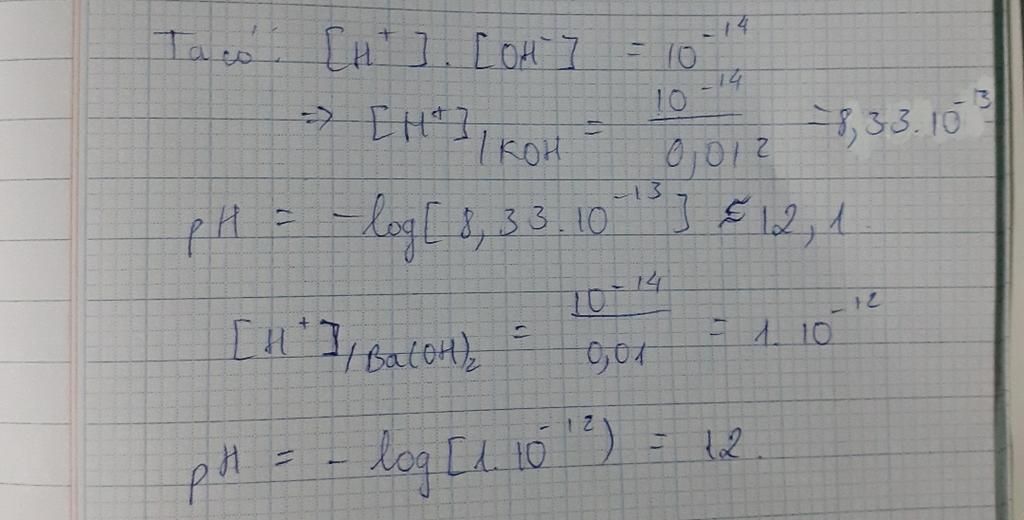 Ta có: [H⁺].[OH⁻] = 10⁻¹⁴
=> [H⁺]/KOH = 10⁻¹⁴ / 0,012 = 8,33.10⁻¹³
pH = -log[8,33.10⁻¹³] ≈ 12,1.
[H⁺]/Ba(OH)₂ = 10⁻¹⁴ / 0,01 = 1.10⁻¹²
pH = -log[1.10⁻¹²) = 12.